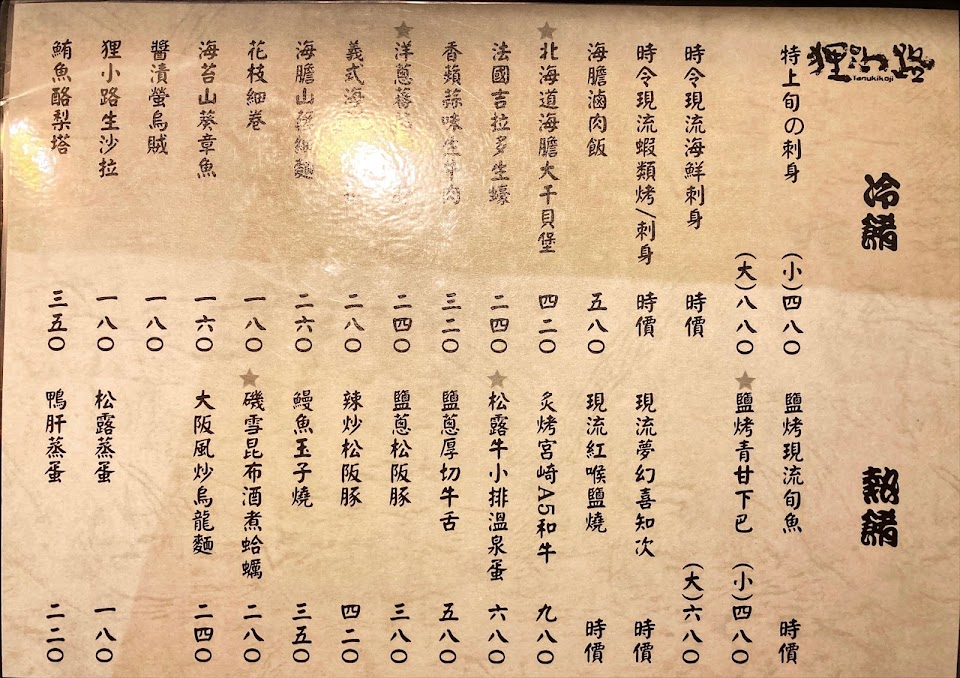 狸小路
tanukikoji
冷餚
特上旬の刺身 (小)四八〇
(大)八八〇
時令現流海鮮刺身 時價
時令現流蝦類烤/刺身 時價
海膽滷肉飯 五八〇
北海道海膽大干貝堡 四二〇
法國吉拉多生蠔 二四〇
香蘋蒜味生牛肉 三二〇
洋蔥蕃 二四〇
義式海 二八〇
海膽山藥細麵 二六〇
花枝細卷 一八〇
海苔山葵章魚 一六〇
醬漬螢烏賊 一八〇
狸小路生沙拉 一八〇
鮪魚酪梨塔 三五〇
熱餚
鹽烤現流旬魚 時價
鹽烤青甘下巴 (小)四八〇
(大)六八〇
現流夢幻喜知次 時價
現流紅喉鹽燒 時價
炙烤宮崎A5和牛 九八〇
松露牛小排溫泉蛋 六八〇
鹽蔥厚切牛舌 五八〇
鹽蔥松阪豚 三八〇
辣炒松阪豚 四二〇
鰻魚玉子燒 三五〇
磯雪昆布酒煮蛤蠣 二八〇
大阪風炒烏龍麵 二四〇
松露蒸蛋 一八〇
鴨肝蒸蛋 二二〇